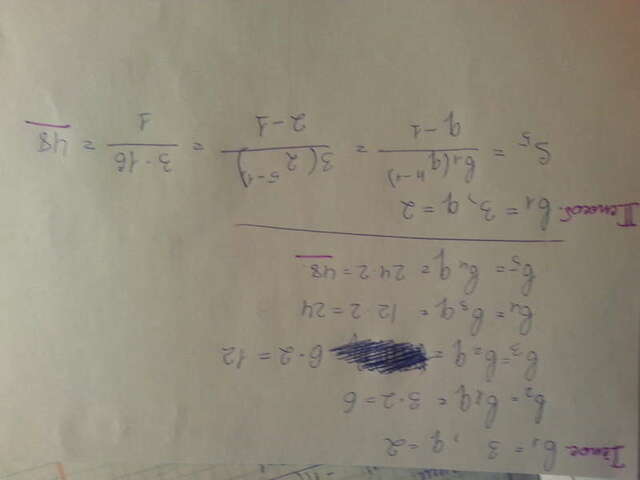 I способ. b₁ = 3, q = 2
b₂ = b₁q = 3·2 = 6
b₃ = b₂q = 6·2 = 12
b₄ = b₃q = 12·2 = 24
b₅ = b₄q = 24·2 = 48
II способ. b₁ = 3, q = 2
S₅ = b₁(qⁿ⁻¹) / q-1 = 3(2⁵⁻¹) / 2-1 = 3·16 / 1 = 48